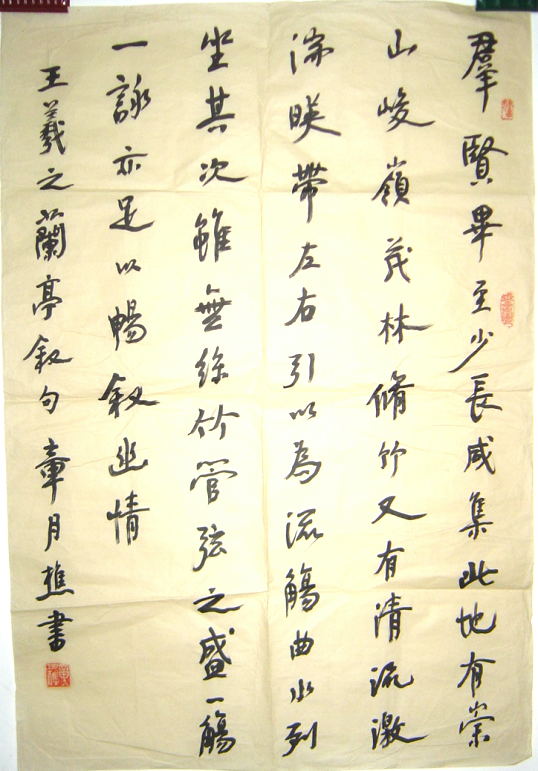 羣賢畢至少長咸集此地有崇
山峻嶺茂林脩竹又有清流激
湍暎帶左右引以為流觴曲水列
坐其次雖無絲竹管弦之盛一觴
一詠亦足以暢叙幽情
王羲之蘭亭叙句章月樵書